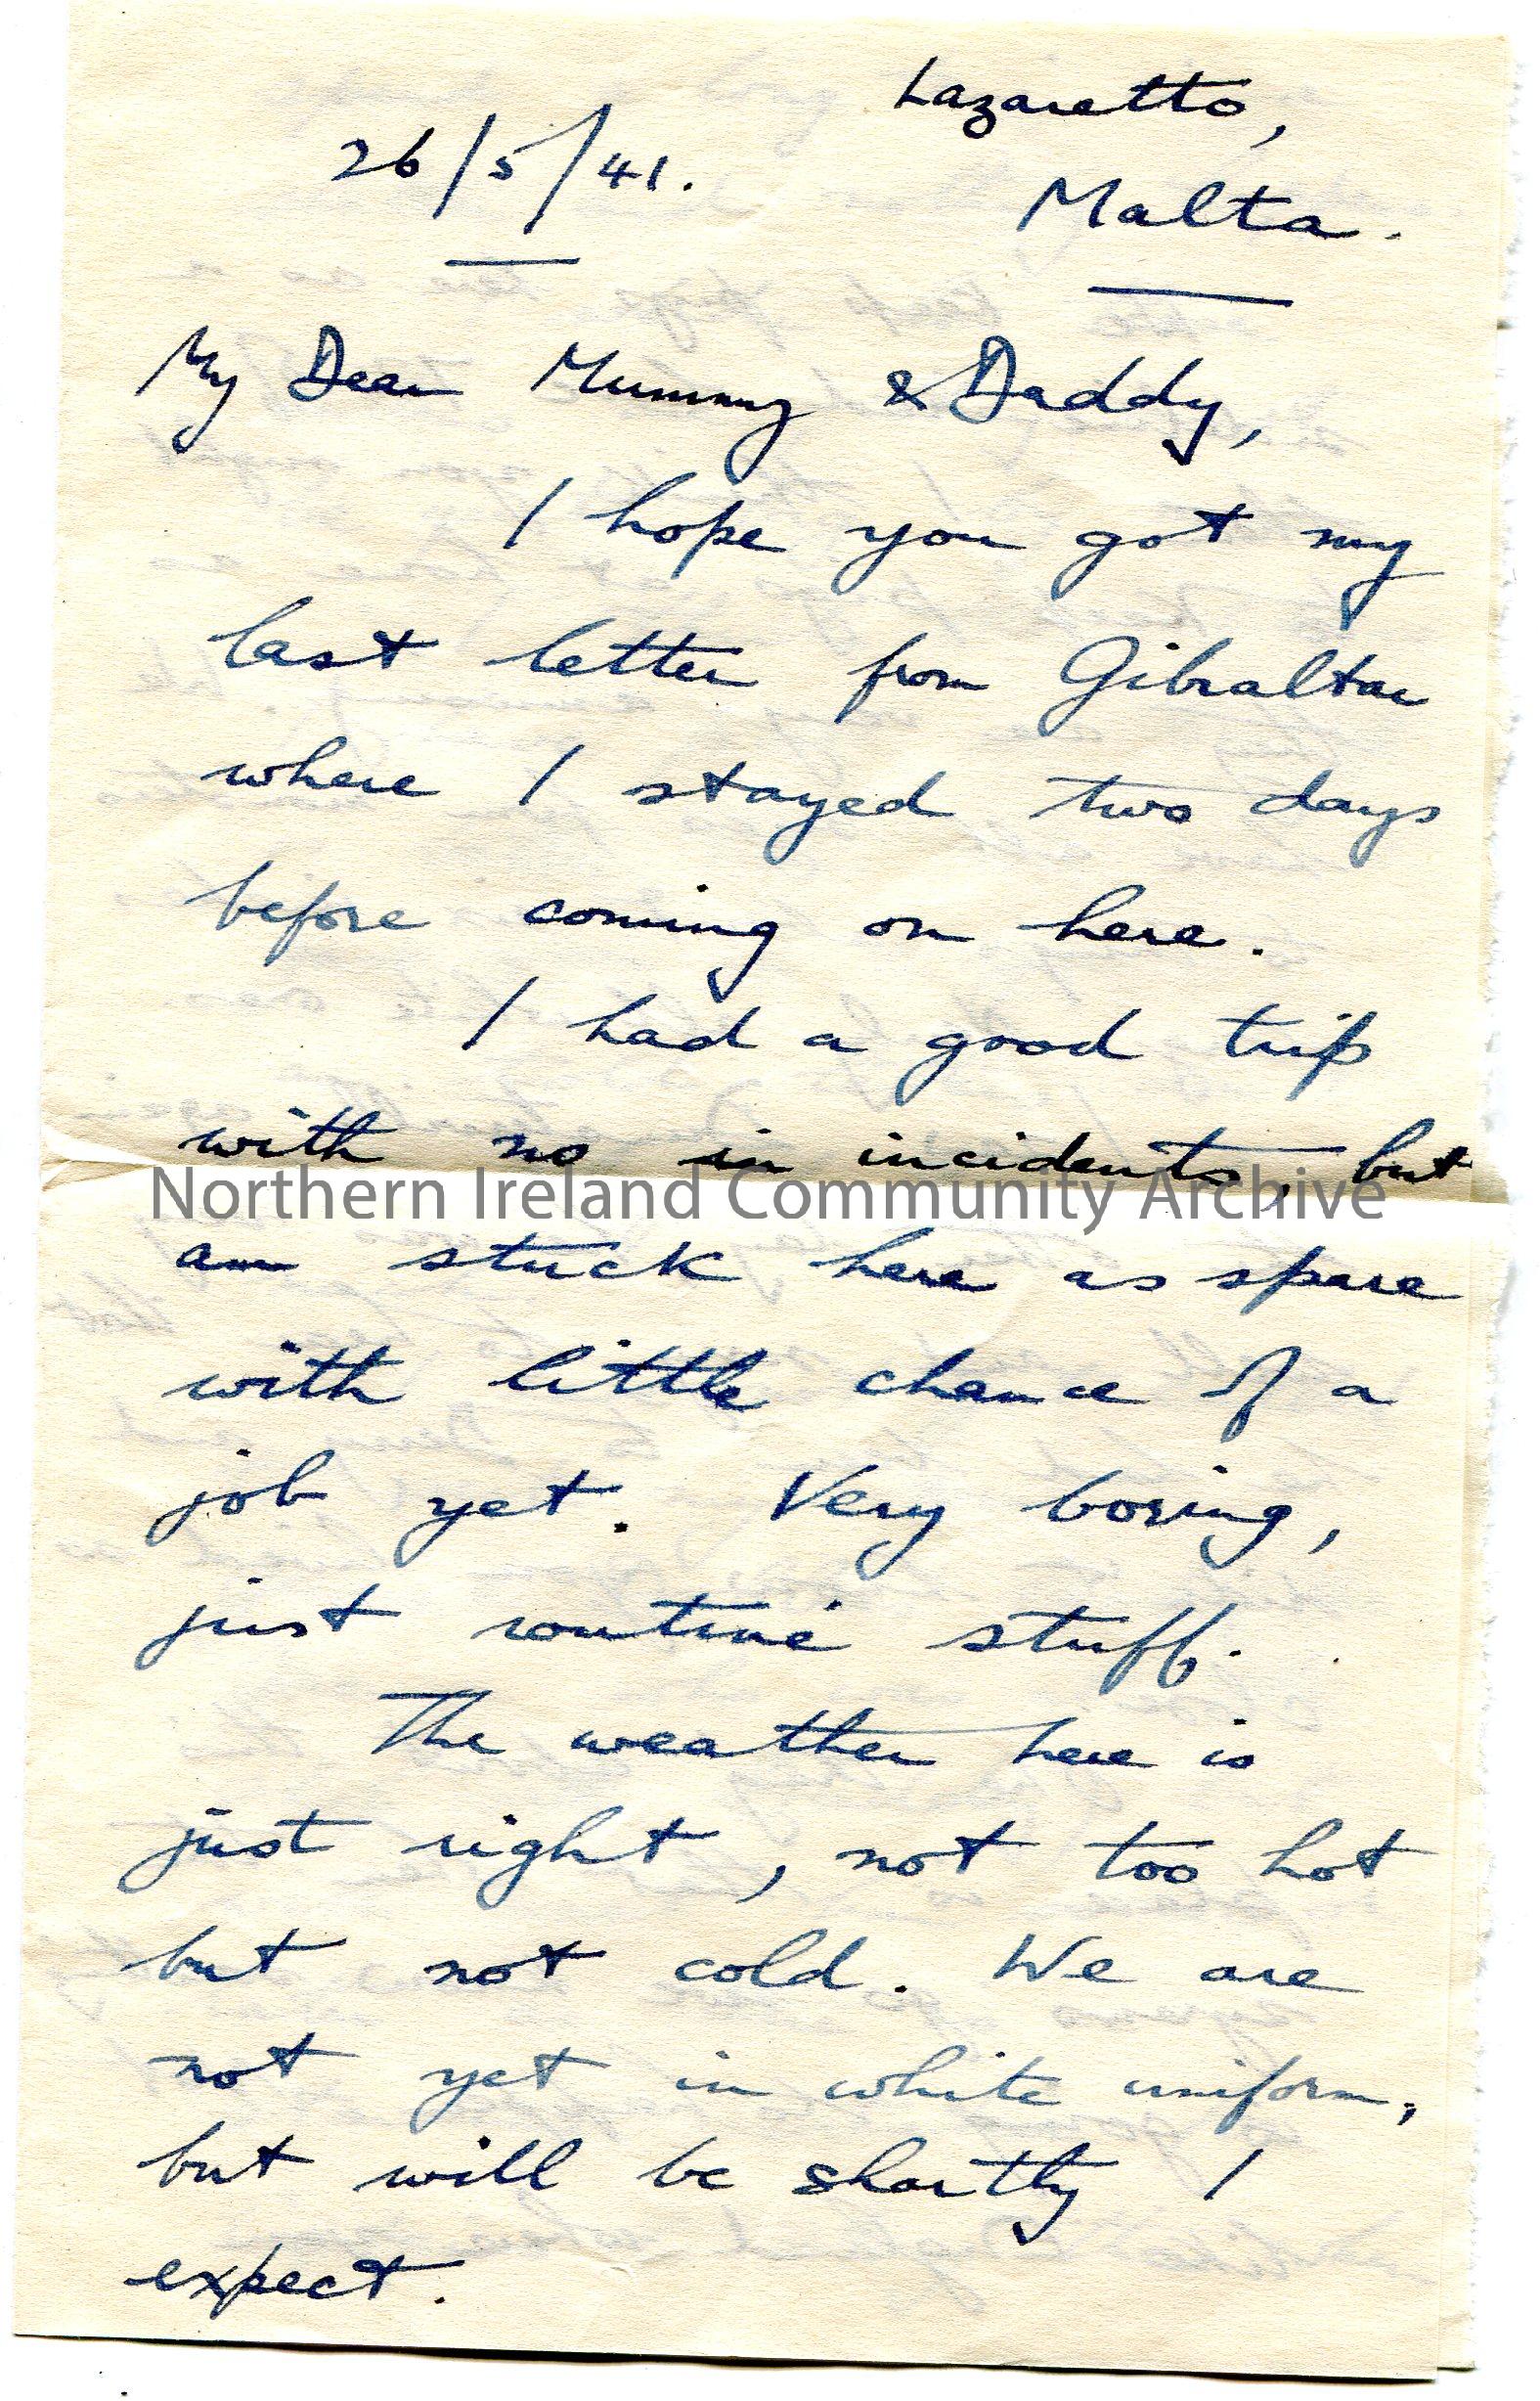 Lazaretto,
26/5/41.
Malta.
My Dear Mummy & Daddy,
I hope you got my
last letter from Gibraltar
where I stayed two days
before coming on here.
I had a good trip
with no in incidents, but
Northern Ireland Community Archive
am stuck here as spare
with little chance of a
job yet. Very boring,
just routine stuff.
The weather here is
just right, not too hot
but not cold. We are
not yet in white uniform,
but will be shortly I
expect.